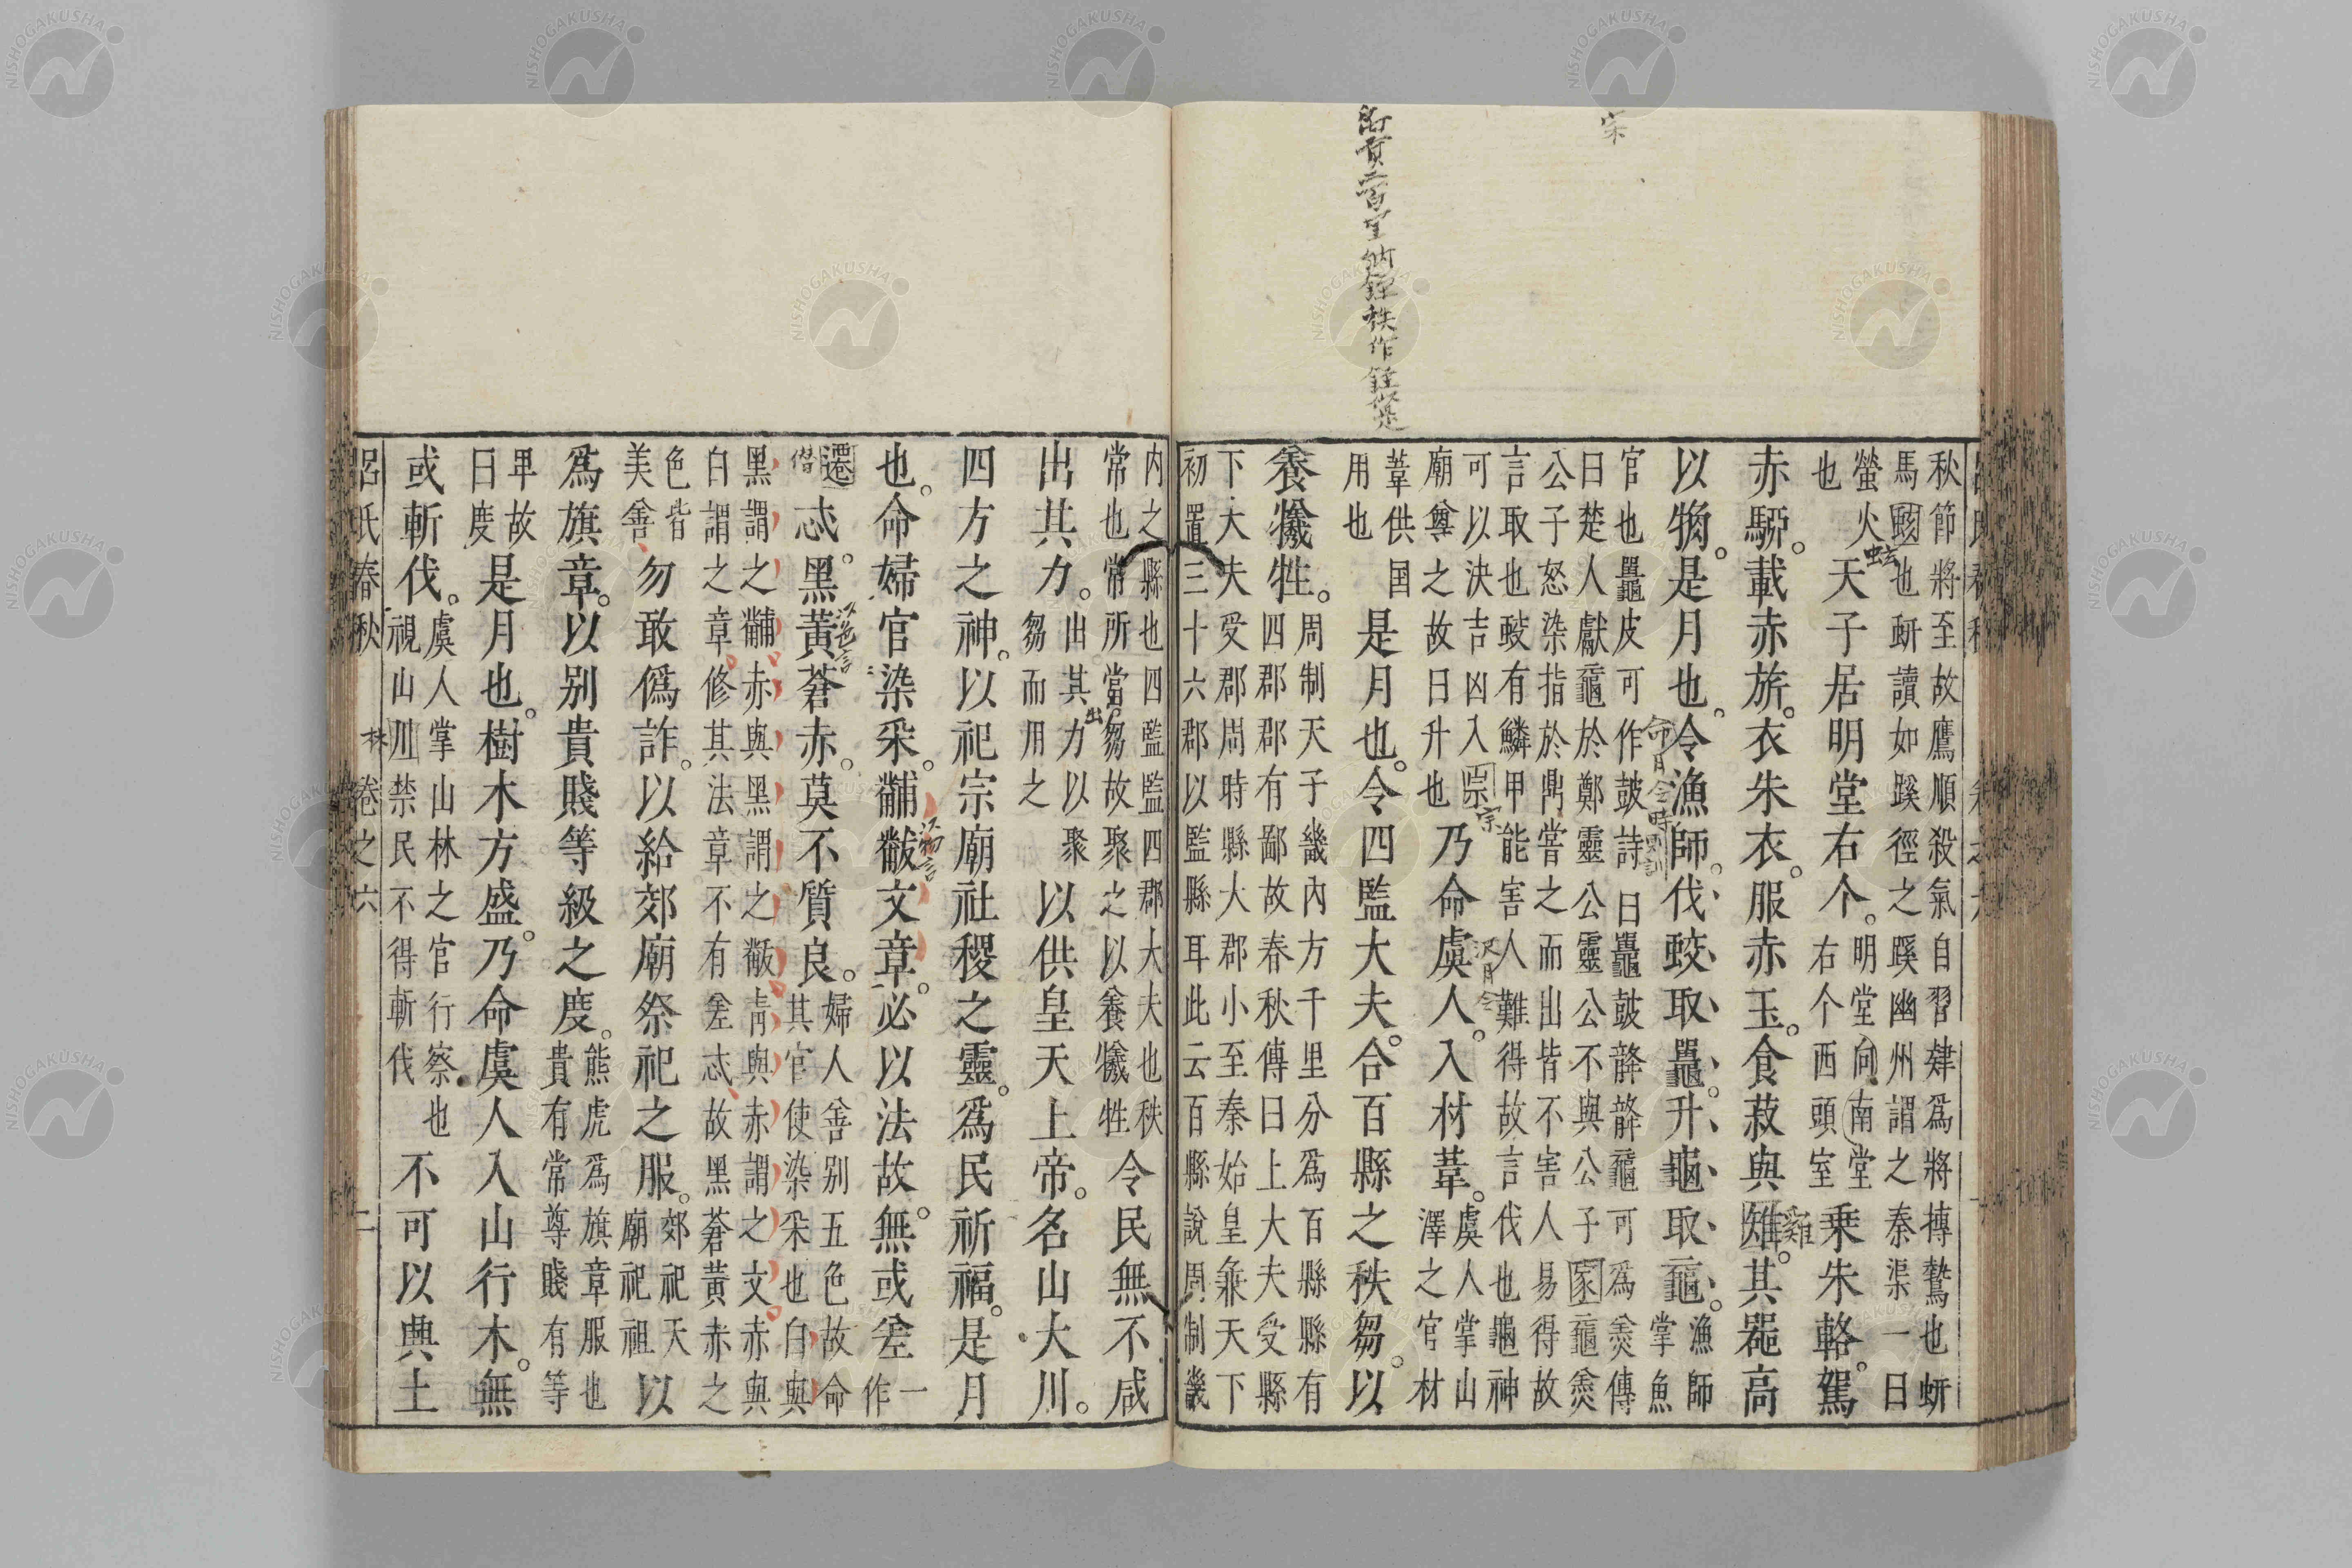 宋
呂氏春秋
秋節將至故鷹順殺氣自習肄爲將搏鷙也蚈
馬蚿也蚈讀如蹊徑之蹊幽州謂之秦渠一曰
螢火也天子居明堂右个。明堂向南堂右个西頭室乗朱輅。駕
赤騮。載赤旂。衣朱衣。服赤玉。食菽與雉。其噐高
以。是月也。令漁師。伐蛟取鼉。升龜取黿。漁師掌魚
官也鼉皮可作鼓詩曰鼉鼓韸韸黿可爲羹傳
曰楚人獻黿於鄭靈公靈公不與公子家黿羹
公子怒染指於鼎嘗之而出皆不害人易得故
言取也蛟有鱗甲能害人難得故言伐也龜神
可以決吉凶入宗廟尊之故曰升也乃命虞人。入材葦。虞人掌山澤之官材
葦供国用也是月也。令四監大夫。合百縣之秩芻。以
養犧牲。周制天子畿内方千里分爲百縣縣有四郡郡有鄙故春秋傳曰上大夫受縣
下大夫受郡周時縣大郡小至秦始皇兼天下
初置三十六郡以監縣耳此云百縣說周制畿
内之縣也四監監四郡大夫也秩常也常所當芻故聚之以養犧牲令民無不咸
出其力。出其力以聚芻而用之以供皇天上帝。名山大川。
四方之神。以祀宗廟社稷之靈。爲民祈福。是月
也。命婦官染采。黼黻文章。必以法故。無或差一作
遷忒。黑黃蒼赤。莫不質良。婦人善别五色故命其官使染采也白與
黑謂之黼赤與黑謂之黻青與赤謂之文赤與
白謂之章修其法章不有差忒故黑蒼黃赤之
色皆美善勿敢僞詐。以給郊廟祭祀之服。郊祀天廟祀祖以
爲旗章。以别貴賤等級之度。熊虎爲旗章服也貴有常尊賤有等
卑故曰度是月也。樹木方盛。乃命虞人入山行木。無
或斬伐。虞人掌山林之官行察也視山川禁民不得斬伐不可以興土
呂氏春秋 卷之六 二